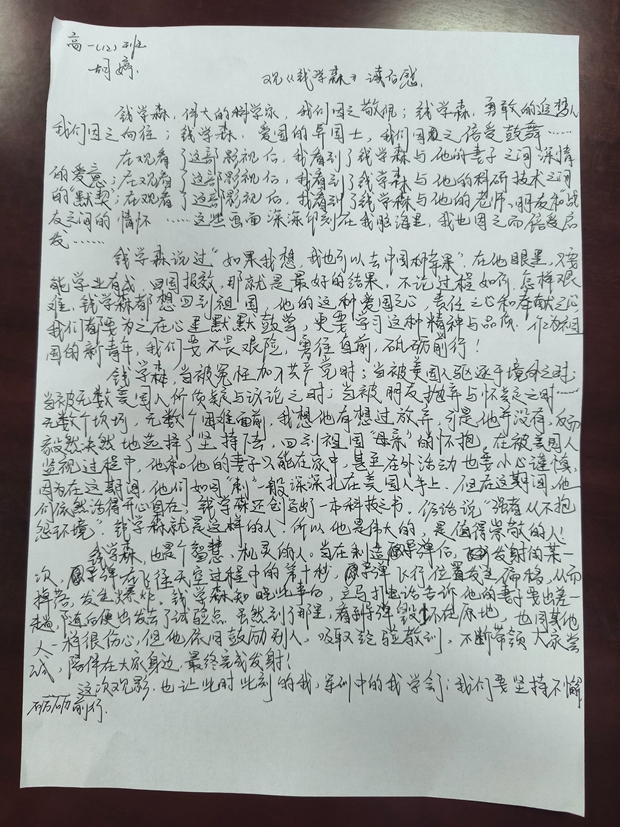 高一(12)班
胡婷
观《钱学森》读后感
钱学森,伟大的科学家,我们因之敬佩;钱学森,勇敢的追梦人
我们因之向往;钱学森,爱国的异国士,我们因之倍受鼓舞……
在观看了这部影视后,我看到了钱学森与他的妻子之间深情
的爱意;在观看了这部影视后,我看到了钱学森与他的科研技术之间
的"默契";在观看了这部影视后,我看到了钱学森与他的老师、朋友和战
友之间的情怀……这些画面深深印刻在我脑海里,我也因之而倍受启
发……
钱学森说过"如果我想,我也可以去中国种苹果",在他眼里,只要
能学业有成,回国报效,那就是最好的结果,不论过程如何,怎样艰
难,钱学森都想回到祖国,他的这种爱国之心,责任之心和奉献之心
我们都要为之在心里默默鼓掌,更要学习这种精神与品质,作为祖
国的新青年,我们要不畏艰险,勇往直前,砥砺前行!
钱学森,当被冤枉加入共产党时;当被美国人驱逐于境外之时;
当被无数美国人所质疑与议论之时;当被朋友抛弃与怀疑之时……
无数个坎坷,无数个困难面前,我想他有想过放弃,可是他并没有,反而
毅然决然地选择了坚持下去,回到祖国"母亲"的怀抱,在被美国人
监视过程中,他和他的妻子只能在家中,甚至在外活动也要小心谨慎,
因为在这期间,他们如同"刺"一般深深扎在美国人手上,但在这期间,他
们依然活得开心自在,钱学森还创写好一本科技之书,俗话说"强者从不抱
怨环境",钱学森就是这样的人,所以他是伟大的,是值得崇敬的人!
钱学森,也是个智慧、机灵的人。当在制造导弹后,发射的某一
次,导弹在飞往天空过程中的第十秒,导弹飞行位置发生偏移,从而
掉落,发生爆炸。钱学森知晓此事后,立马打电话告诉他的妻子要出差一
趟,随后便也发去了试验点,虽然到了那里,看到导弹毁坏在原地,也同其他
人一样很伤心,但他依旧鼓励别人,吸取经验教训,不断带领大家尝
试,陪伴在大家身边,最终完成发射!
这次观影,也让此时此刻的我,军训中的我学会了:我们要坚持不懈
砺砺前行。